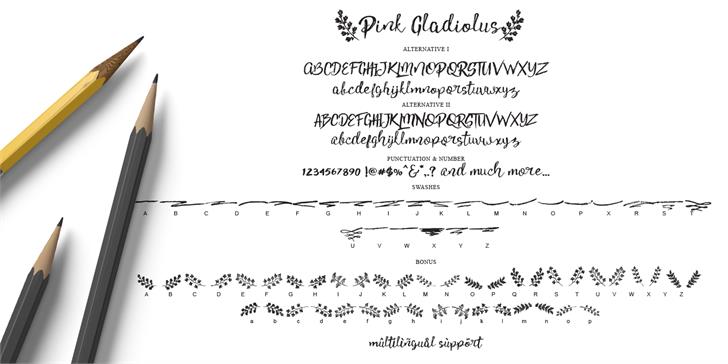 Pink Gladiolus
ALTERNATIVE I
ABCDEFGHIJKLMNOPQRSTUVWXYZ
abcdefghijklmnopqrstuvwxyz
ALTERNATIVE II
ABCDEFGHIJKLMNOPQRSTUVWXYZ
abcdefghijklmnopqrstuvwxyz
PUNCTUATION & NUMBER
1234567890 !@#$%^&*,.? and much more...
SWASHES
A B C D E F G H I J K L M N O P Q R S T
U V W X Y Z
BONUS
A B C D E F G H I J K L M N O P Q R S T U V W X Y Z
a b c d e f g h i j k l m n o p
multilingual support